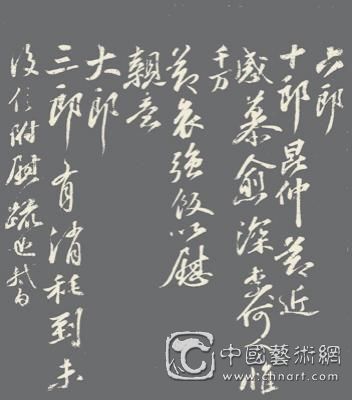 六郎
十郎昆仲節近
感慕愈深奈何惟
千万
節哀強飯以慰
親意
大郎
三郎有消耗到未
後信附慰疏也軾白
中國藝術網
www.chnart.com